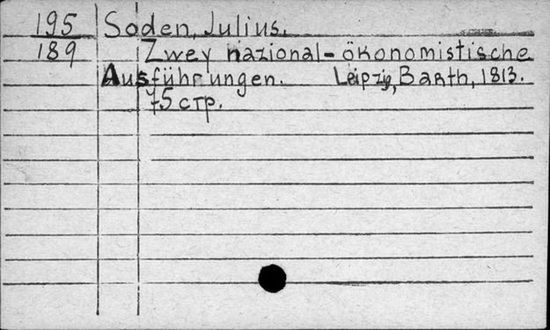 195 Soden, Julius.
189 Zwey nazional-ökonomistische
Ausführungen. Leipzig, Barth, 1813.
75 стр.